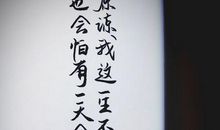 原谅我这一生不
也会怕有一天